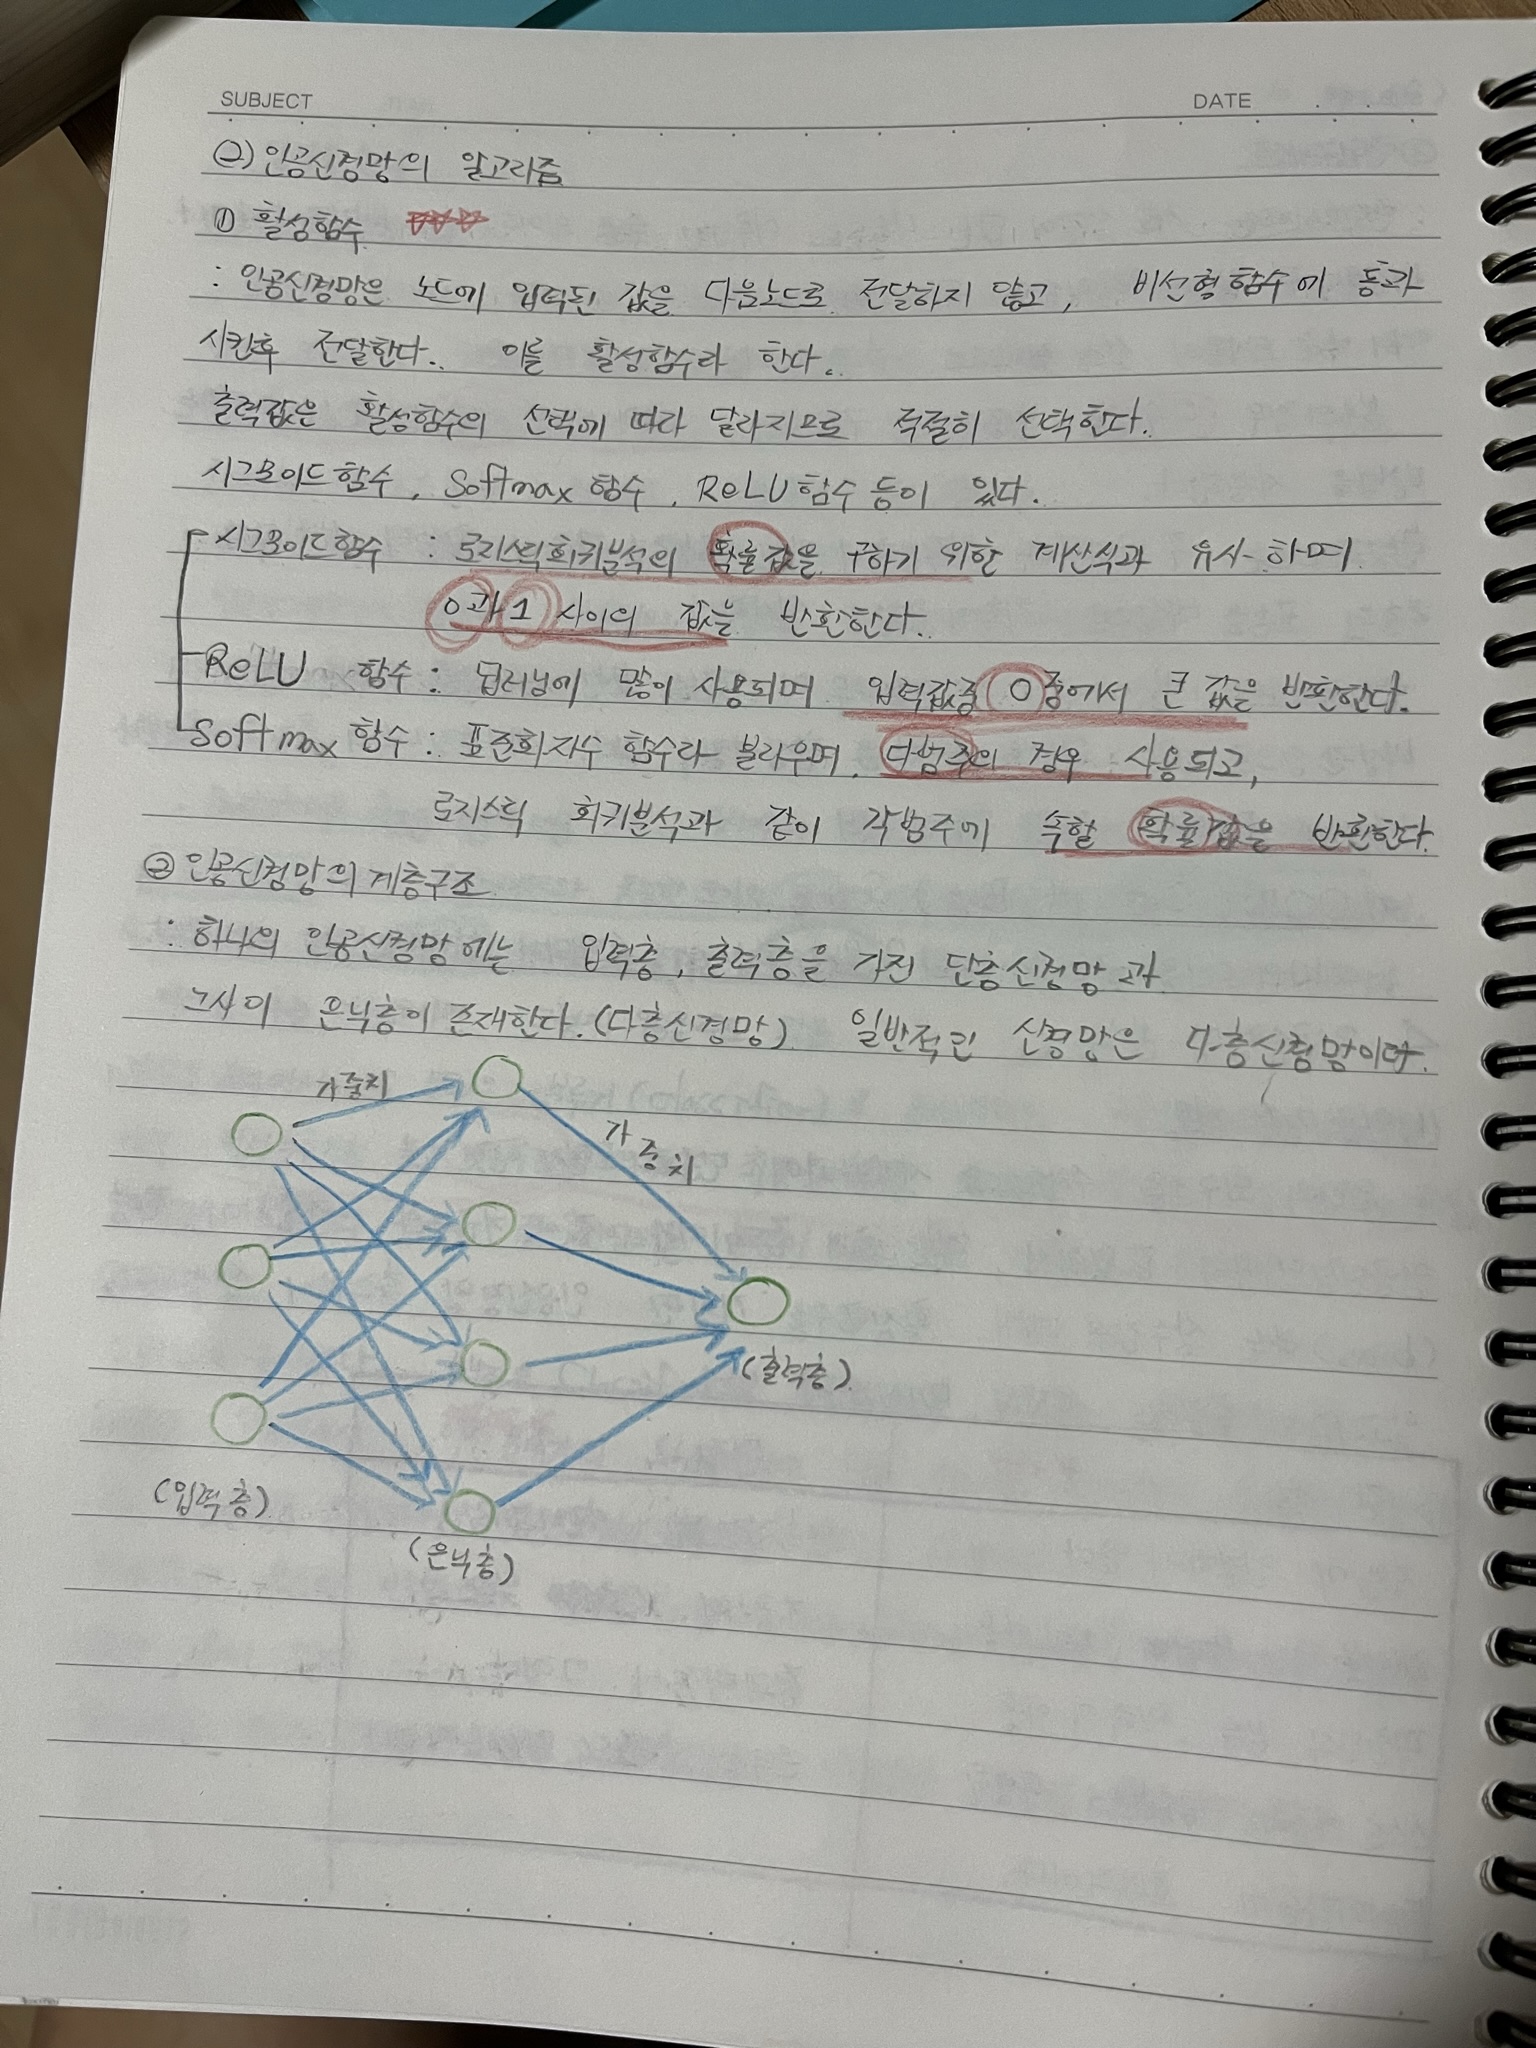 SUBJECT
DATE
(2) 인공신경망의 알고리즘
① 활성함수
: 인공신경망은 노드에 입력된 값을 다음노드로 전달하지 않고, 비선형함수에 통과
시킨후 전달한다. 이를 활성함수라 한다.
출력값은 활성함수의 선택에 따라 달라지므로 적절히 선택한다.
시그모이드함수, Softmax 함수, ReLU함수 등이 있다.
시그모이드함수 : 로지스틱회귀분석의 확률값을 구하기 위한 계산식과 유사하며
0과 1 사이의 값을 반환한다.
ReLU 함수 : 딥러닝에 많이 사용되며 입력값중 0중에서 큰 값을 반환한다.
Softmax 함수 : 표준화지수 함수라 불리우며, 다범주의 경우 사용되고,
로지스틱 회귀분석과 같이 각범주에 속할 확률값을 반환한다.
② 인공신경망의 계층구조
: 하나의 인공신경망에는 입력층, 출력층을 가진 단층신경망과
그사이 은닉층이 존재한다.(다층신경망) 일반적인 신경망은 다층신경망이다.
가중치
가중치
(출력층)
(입력층)
(은닉층)